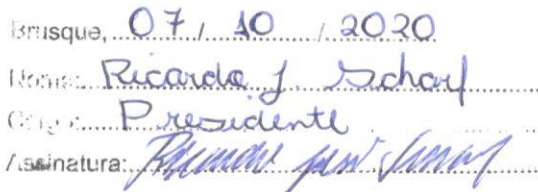 Brusque, 07 / 10 / 2020
Nome: Ricardo J. Scharf
Cargo: Presidente
Assinatura: